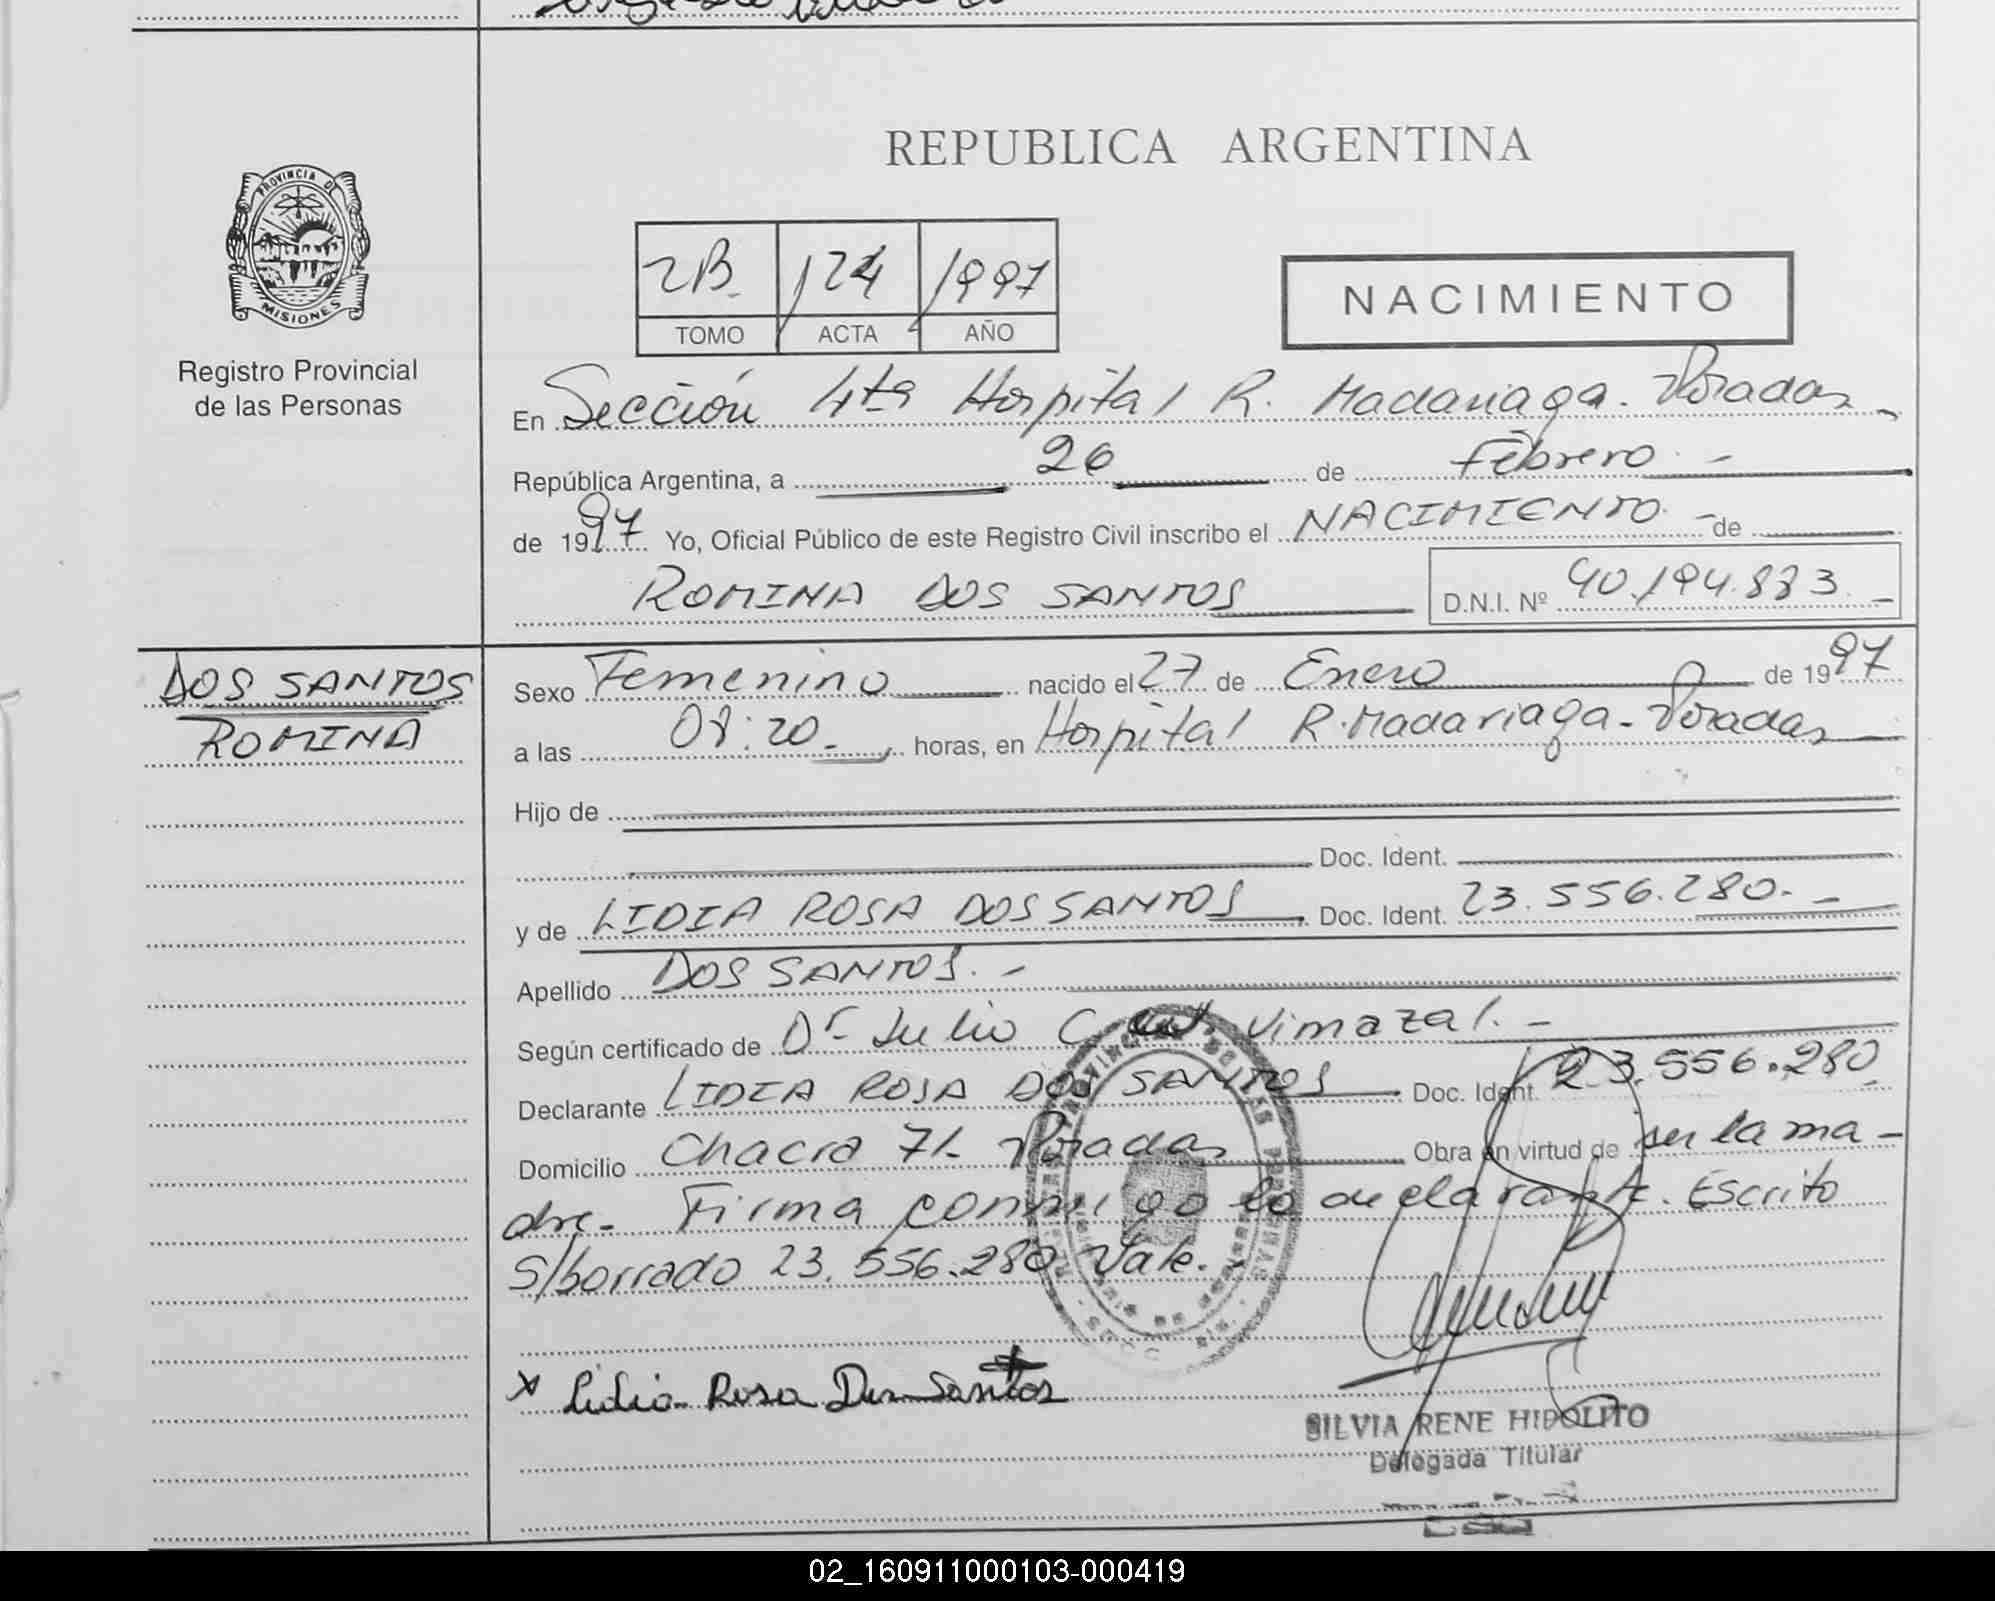 REPUBLICA ARGENTINA
PROVINCIA DE
MISIONES
Registro Provincial
de las Personas
2B. 124 1997
TOMO ACTA AÑO
NACIMIENTO
En Sección 4ta Hospital R. Madariaga. Posadas
República Argentina, a 26 de Febrero. -
de 1997 Yo, Oficial Público de este Registro Civil inscribo el NACIMIENTO - de
ROMINA DOS SANTOS D.N.I. Nº 40.194.883. -
DOS SANTOS
ROMINA
Sexo Femenino nacido el 27 de Enero de 1997
a las 08:20. horas, en Hospital R. Madariaga - Posadas
Hijo de
Doc. Ident.
y de LIDIA ROSA DOS SANTOS Doc. Ident. 23.556.280. -
Apellido DOS SANTOS. -
Según certificado de Dr Julio C. Vimazal. -
Declarante LIDIA ROSA DOS SANTOS Doc. Ident. 23.556.280
Domicilio Chacra 71- Posadas Obra en virtud de ser la ma-
dre. Firma conmigo la declarante. Escrito
S/borrado 23.556.280 Vale.
x Lidia Rosa Dos Santos
SILVIA RENE HIPOLITO
Delegada Titular
02_160911000103-000419